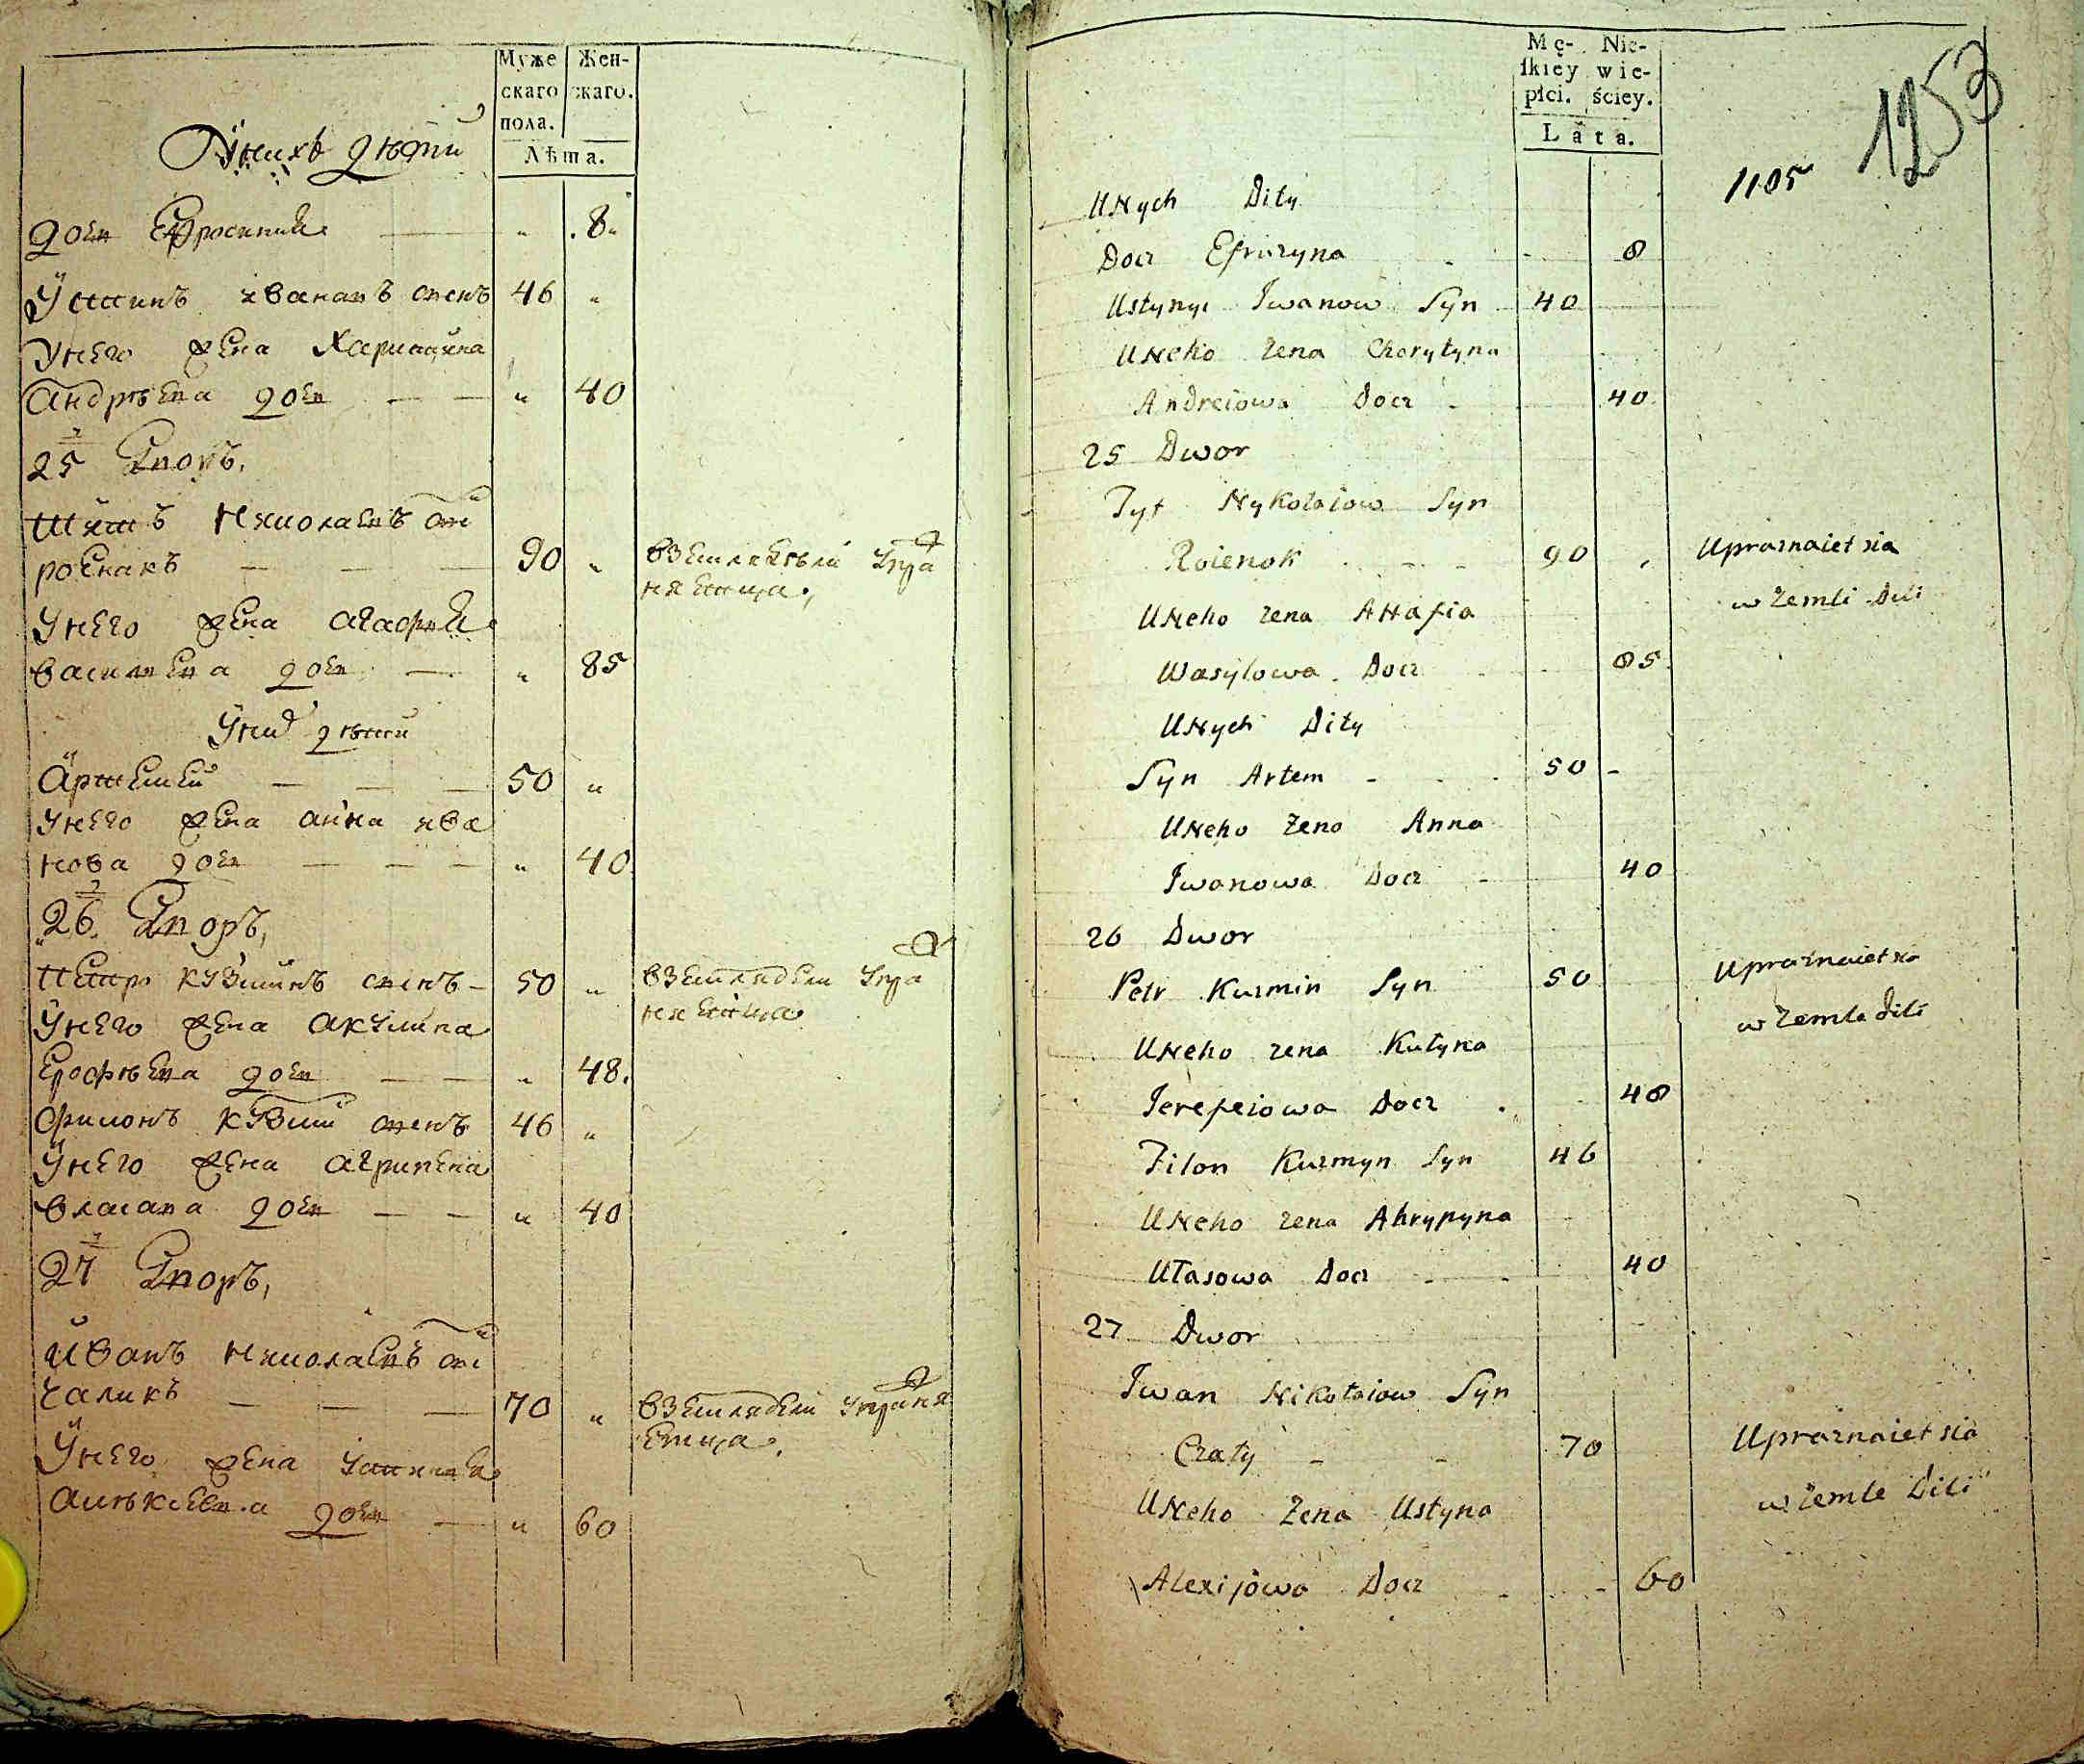 Муже
скаго
пола.
Жен-
скаго.
Лѣта.
У нихъ дѣти
дочь Ефросиния 8
Устинъ Ивановъ сынъ 46
У него жена Харитина
Андрѣева дочь 40
25 Дворъ,
Титъ Николаевъ сы
роенокъ 90 в земледелии упра
жняется,
У него жена Агафия
Василева дочь 85
У них дѣти
Артемий 50
У него жена Анна Ива
нова дочь 40
26 Дворъ,
Петро Кузминъ сынъ 50 в земледелии упра
жняется
У него жена Акулина
Ерофѣева дочь 48.
Филонъ Кузмин сынъ 46
У него жена Агрипена
Власова дочь 40
27 Дворъ,
Иванъ Николаевъ сы
чаликъ 70 в земледелии упражня
ется.
У него жена Устиния
Алѣксеева дочь 60
Mę-
ſkiey
płci.
Nie-
wie-
ściey.
Lata.
1105
1253
UNych Dity
Docz Efrozyna 8
Ustyny Iwanow Syn 40
UNeho żena Charytyna
Andreiowa Docz 40
25 Dwor
Tyt Nykołaiow Syn
Roienok 90 Uprażnaiet sia
w Zemli Dili
UNeho żena AHafia
Wasylowa Docz 85
UNych Dity
Syn Artem 50
UNeho Żena Anna
Iwanowa Docz 40
26 Dwor
Petr Kuzmin Syn 50 Uprażnaiet sia
w Zemle dili
UNeho żena Kułyna
Ierefeiowa Docz 48
Filon Kuzmyn Syn 46
UNeho żena Ahrypyna
Ułasowa Docz 40
27 Dwor
Iwan Nikołaiow Syn
Czały 70 Uprażnaiet sia
w Zemle Dili
UNeho Żena Ustyna
Alexijowa Docz 60